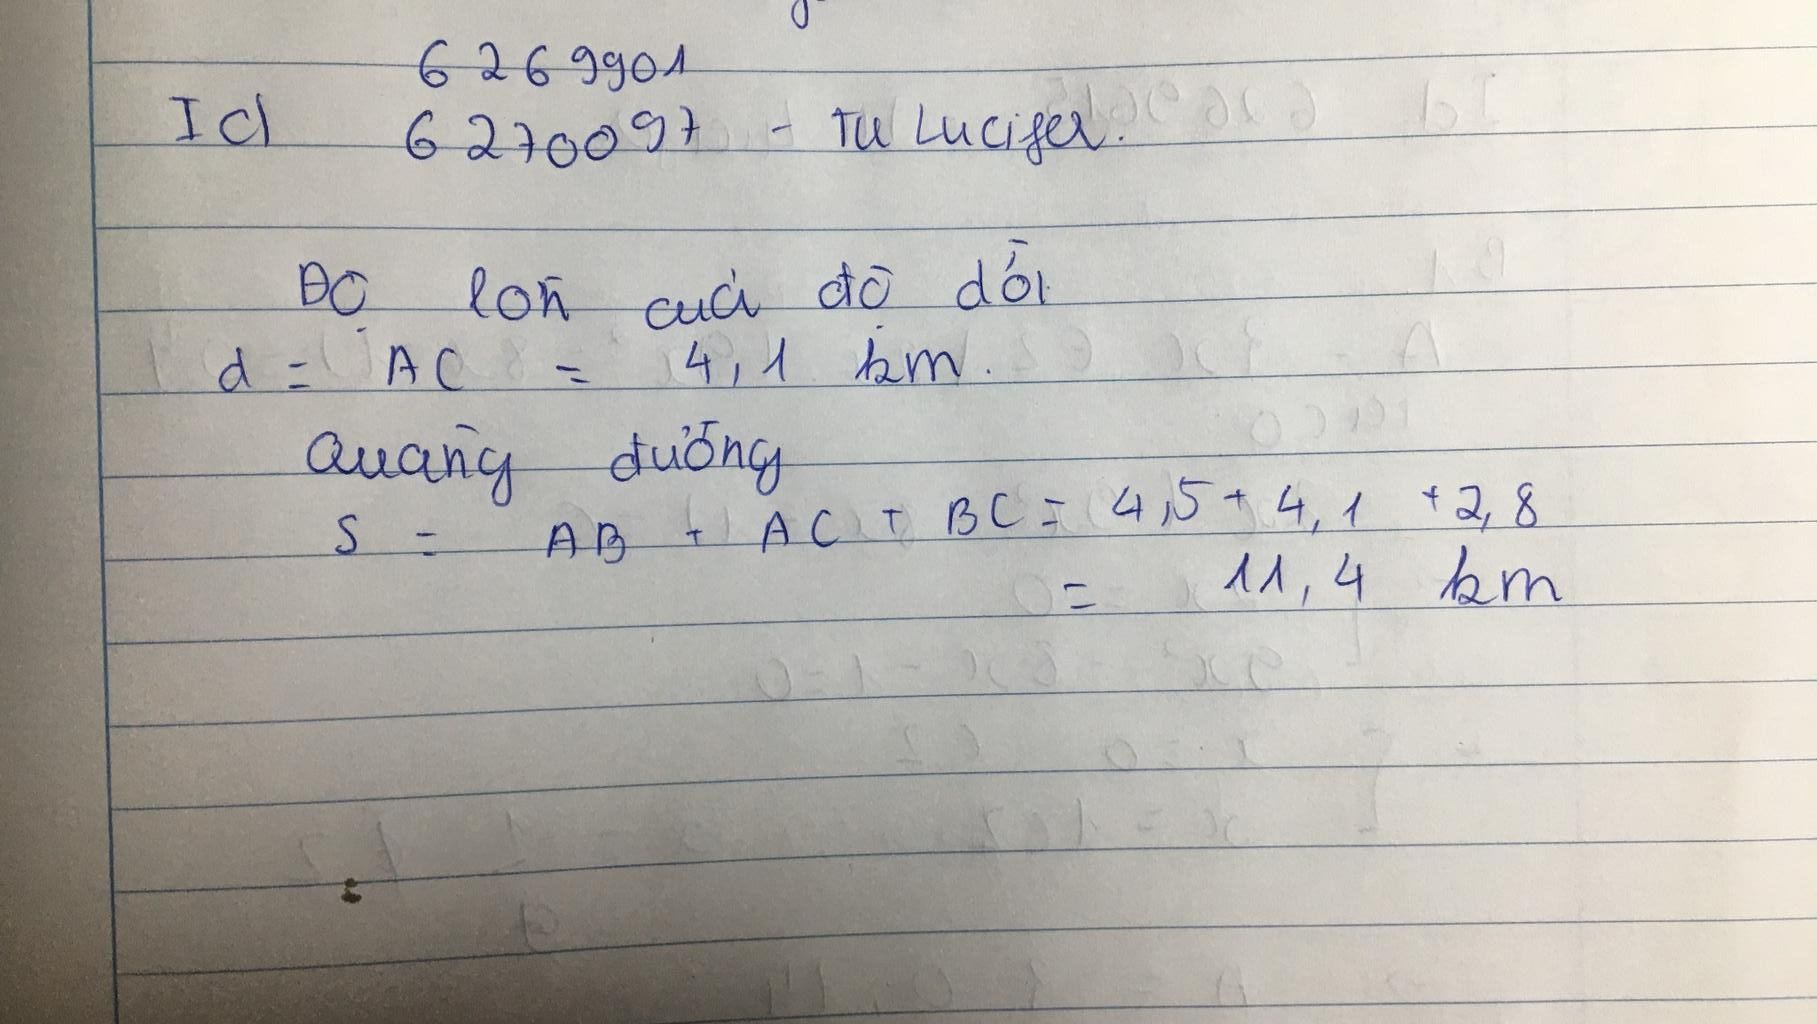 6269901
Id 6270097 - Tu Lucifer.
Độ lớn của độ dời
d = AC = 4,1 km.
Quãng đường
S = AB + AC + BC = 4,5 + 4,1 + 2,8
= 11,4 km